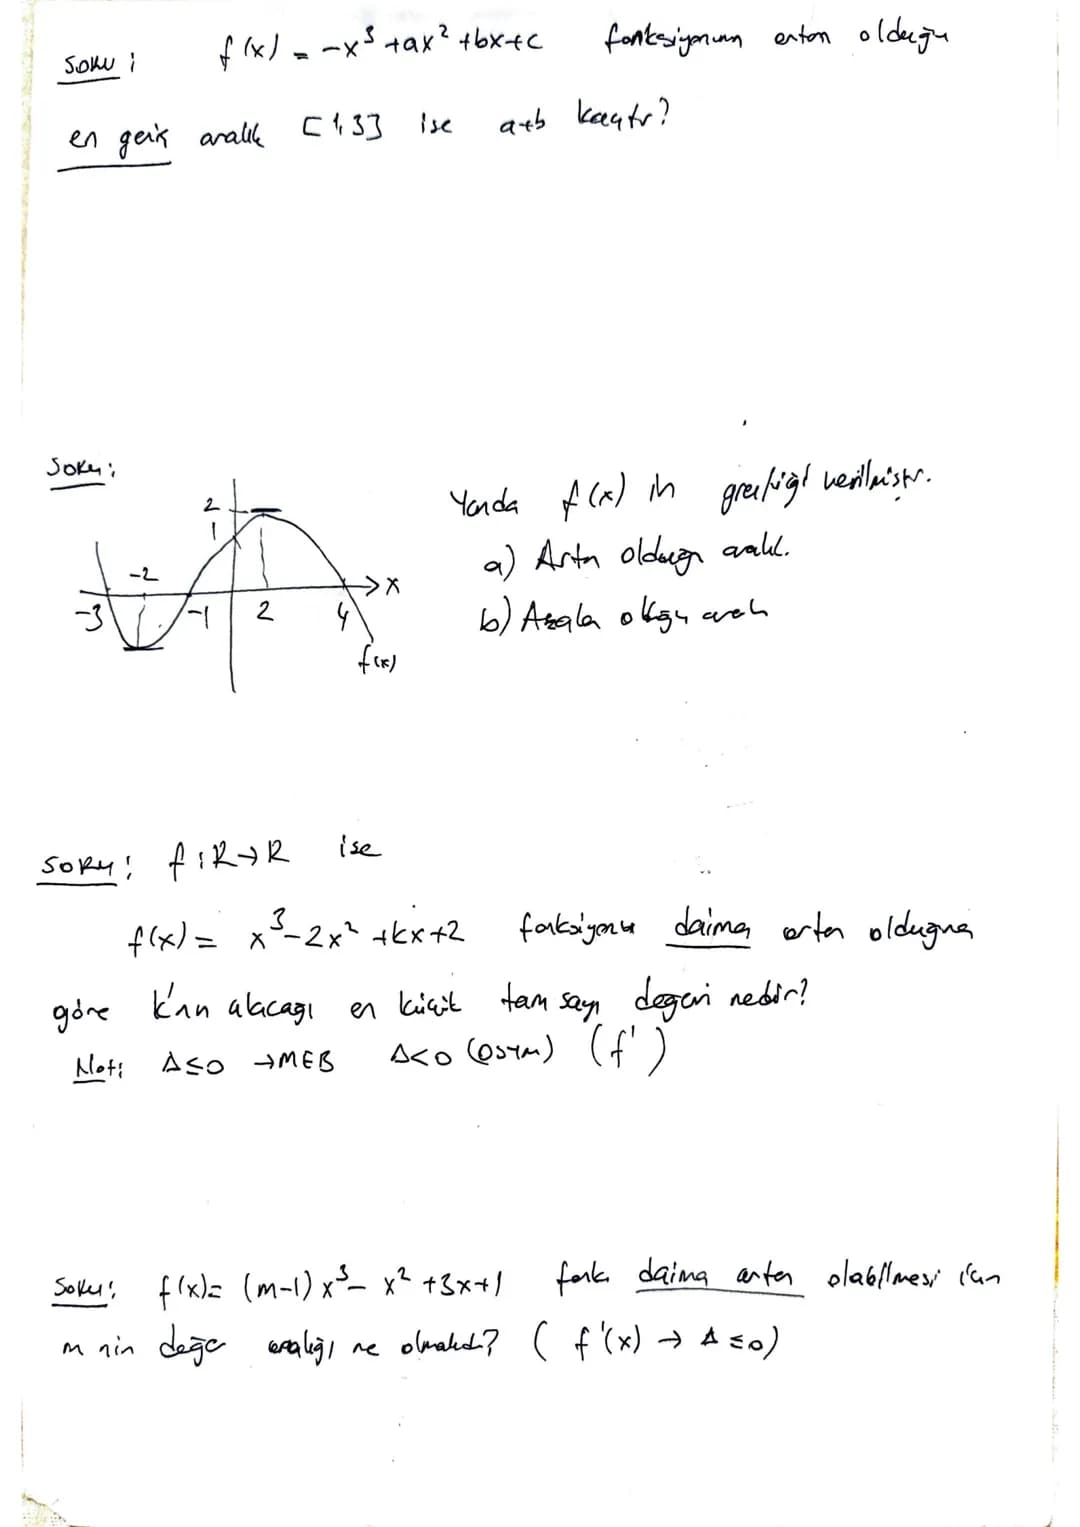 SORU: f(x) = -x³ +ax² +bx+c fonksiyonunun artan olduğu
en geniş aralık [1,3] ise a+b kaçtır?
Soru:
Yanda f(x) in grafiği verilmiştir.
a) Artan olduğu aralık.
b) Azalan olduğu aralık
2
1
-2
-3
-1
2
4
x
f(x)
SORU: f:R→R ise
f(x) = x³-2x² +kx+2 fonksiyonu daima artan olduğuna
göre k'nın alacağı en küçük tam sayı değeri nedir?
Not: Δ≤0 →MEB Δ<0 (ÖSYM) (f')
Soru: f(x)= (m-1)x³- x² +3x+1 fonk. daima artan olabilmesi için
m nin değer aralığı ne olmalıdır? ( f'(x) → Δ≤0)